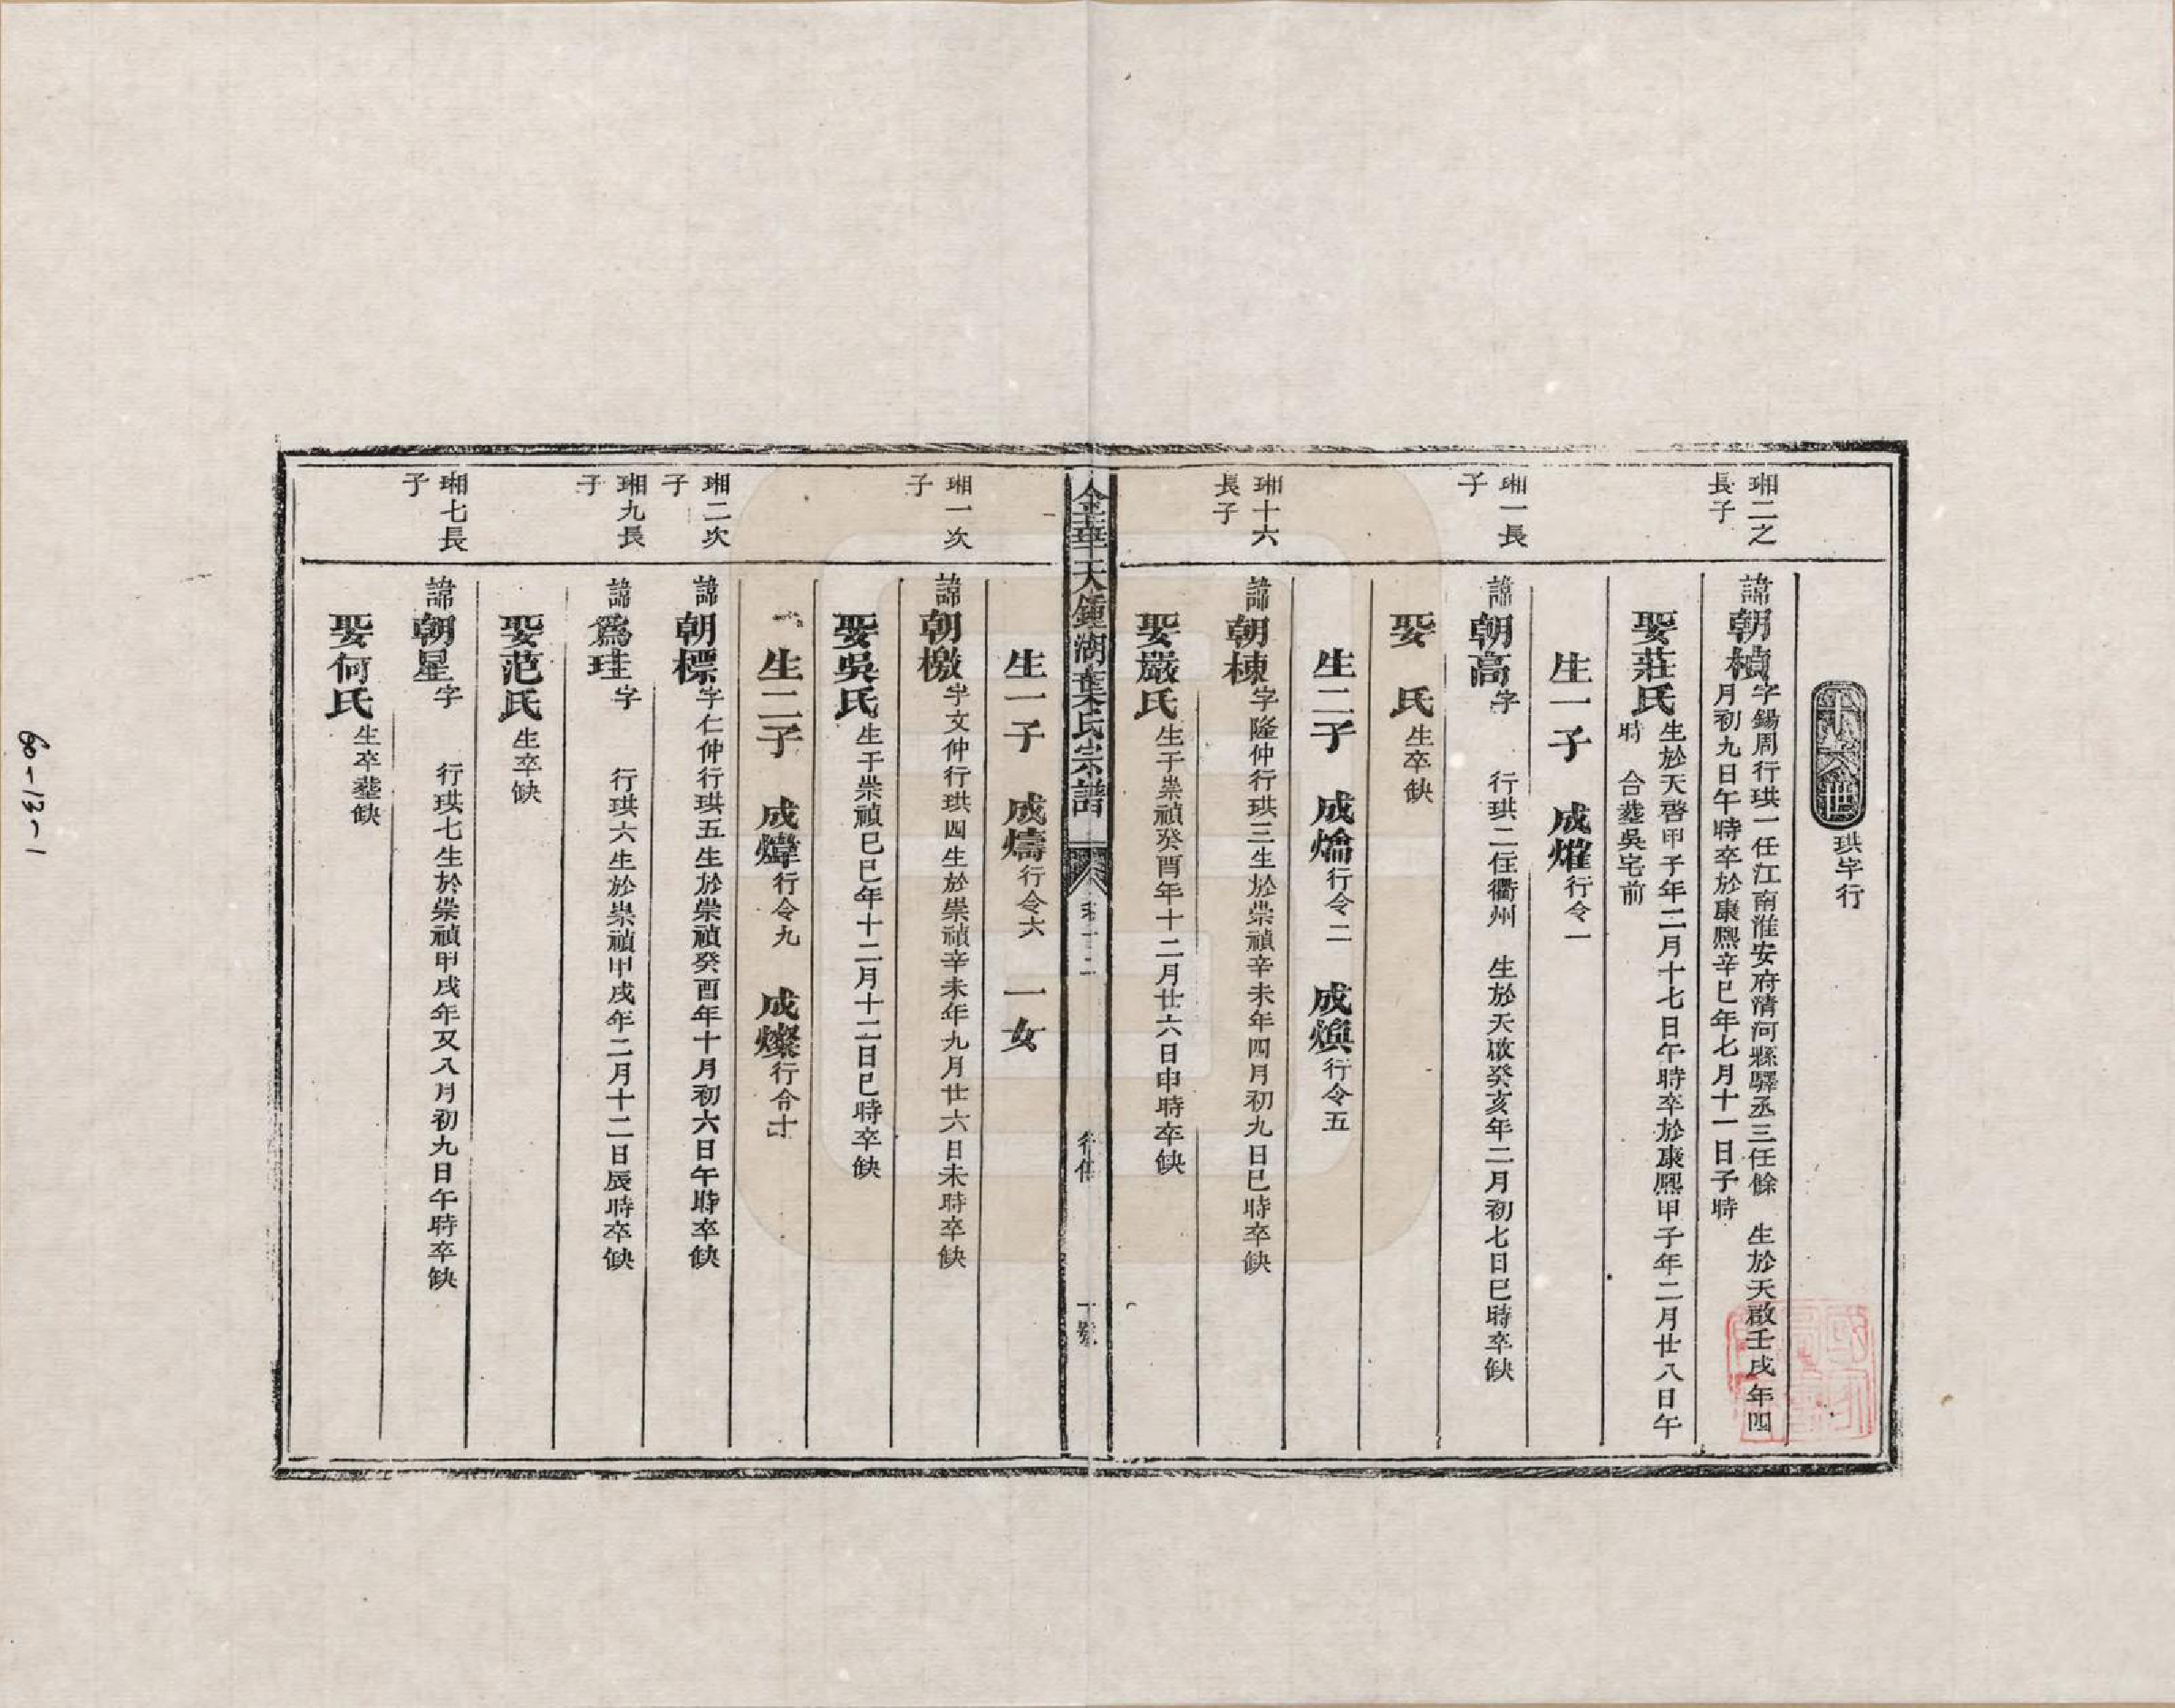 珙字行
瑚二之長子
諱朝楨字錫周行珙一任江南淮安府清河縣驛丞三任餘 生於天啟壬戌年四月初九日午時卒於康熙辛巳年七月十一日子時
娶莊氏生於天啓甲子年二月十七日午時卒於康熙甲子年二月廿八日午時 合塟吳宅前
生一子 成熣行令一
瑚一長子
諱朝高字 行珙二住衢州 生於天啟癸亥年二月初七日巳時卒缺
娶 氏生卒缺
生二子 成爚行令二 成煥行令五
瑚十六長子
諱朝棟字隆仲行珙三生於崇禎辛未年四月初九日巳時卒缺
娶嚴氏生于崇禎癸酉年十二月廿六日申時卒缺
金華天鍾湖葉氏宗譜 卷十二 行傳 一號
生一子 成燽行令六 一女
瑚一次子
諱朝檄字文仲行珙四生於崇禎辛未年九月廿六日未時卒缺
娶吳氏生于崇禎己巳年十二月十二日巳時卒缺
生二子 成煒行令九 成燦行令十
瑚二次子
諱朝標字仁仲行珙五生於崇禎癸酉年十月初六日午時卒缺
瑚九長子
諱爲珪字 行珙六生於崇禎甲戌年二月十二日辰時卒缺
娶范氏生卒缺
瑚七長子
諱朝星字 行珙七生於崇禎甲戌年又八月初九日午時卒缺
娶何氏生卒塟缺
60-13-1